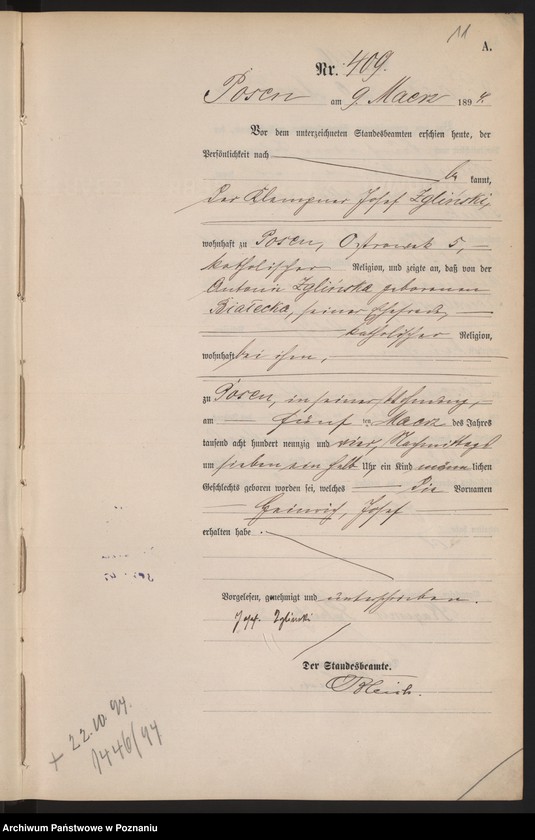 11
A.
Nr. 409.
Posen am 9 Maerz 1894.
Vor dem unterzeichneten Standesbeamten erschien heute, der
Persönlichkeit nach be kannt,
der Klempner Josef Zgliński,
wohnhaft zu Posen, Ostrowek 5,
katholischer Religion, und zeigte an, daß von der
Antonie Zglińska geborenen
Białecka, seiner Ehefrau,
katholischer Religion,
wohnhaft bei ihm,
zu Posen, in seiner Wohnung,
am fünf ten Maerz des Jahres
tausend acht hundert neunzig und vier, Nachmittags
um sieben ein halb Uhr ein Kind männ lichen
Geschlechts geboren worden sei, welches die Vornamen
Heinrich, Josef
erhalten habe.
Vorgelesen, genehmigt und unterschrieben.
Josef Zglinski
Der Standesbeamte.
+ 22.10.94.
1446/94
Archiwum Państwowe w Poznaniu